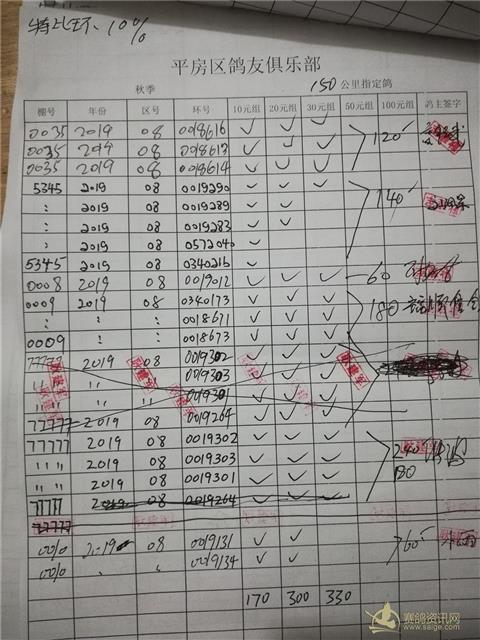 特比环 10%
平房区鸽友俱乐部
秋季 150公里指定鸽
棚号 年份 区号 环号 10元组 20元组 30元组 50元组 100元组 鸽主签字
0035 2019 08 0018616 ✓ ✓
0035 2019 08 0018613 ✓ ✓ ✓ 120
0035 2019 08 0018614 ✓ ✓ ✓
5345 2019 08 0019290 ✓ ✓ ✓
: 2019 08 0019289 ✓ ✓ 140
: 2019 08 0019283 ✓ ✓
: 2019 08 0572040 ✓
5345 2019 08 0340216 ✓
0008 2019 08 0019012 ✓ ✓ ✓ 60
0009 2019 08 0340173 ✓ ✓ ✓ 180
: : : 0018671 ✓ ✓ ✓
0009 : : 0018673 ✓ ✓ ✓
77777 2019 08 0019302 ✓ ✓ ✓
〃 〃 〃 0019303 ✓ ✓ ✓
〃 〃 〃 0019301 ✓ ✓ ✓
77777 2019 08 0019264 ✓ ✓ ✓
77777 2019 08 0019302 ✓ ✓ ✓
〃 〃 2019 08 0019303 ✓ ✓ ✓ 240
〃 〃 2019 08 0019301 ✓ ✓ ✓ 180
77777 2019 08 0019264 ✓ ✓ ✓
77777
0010 2019 08 0019131 ✓ ✓ 60
0010 0019134 ✓ ✓
170 300 330
赛鸽资讯网
www.saige.com